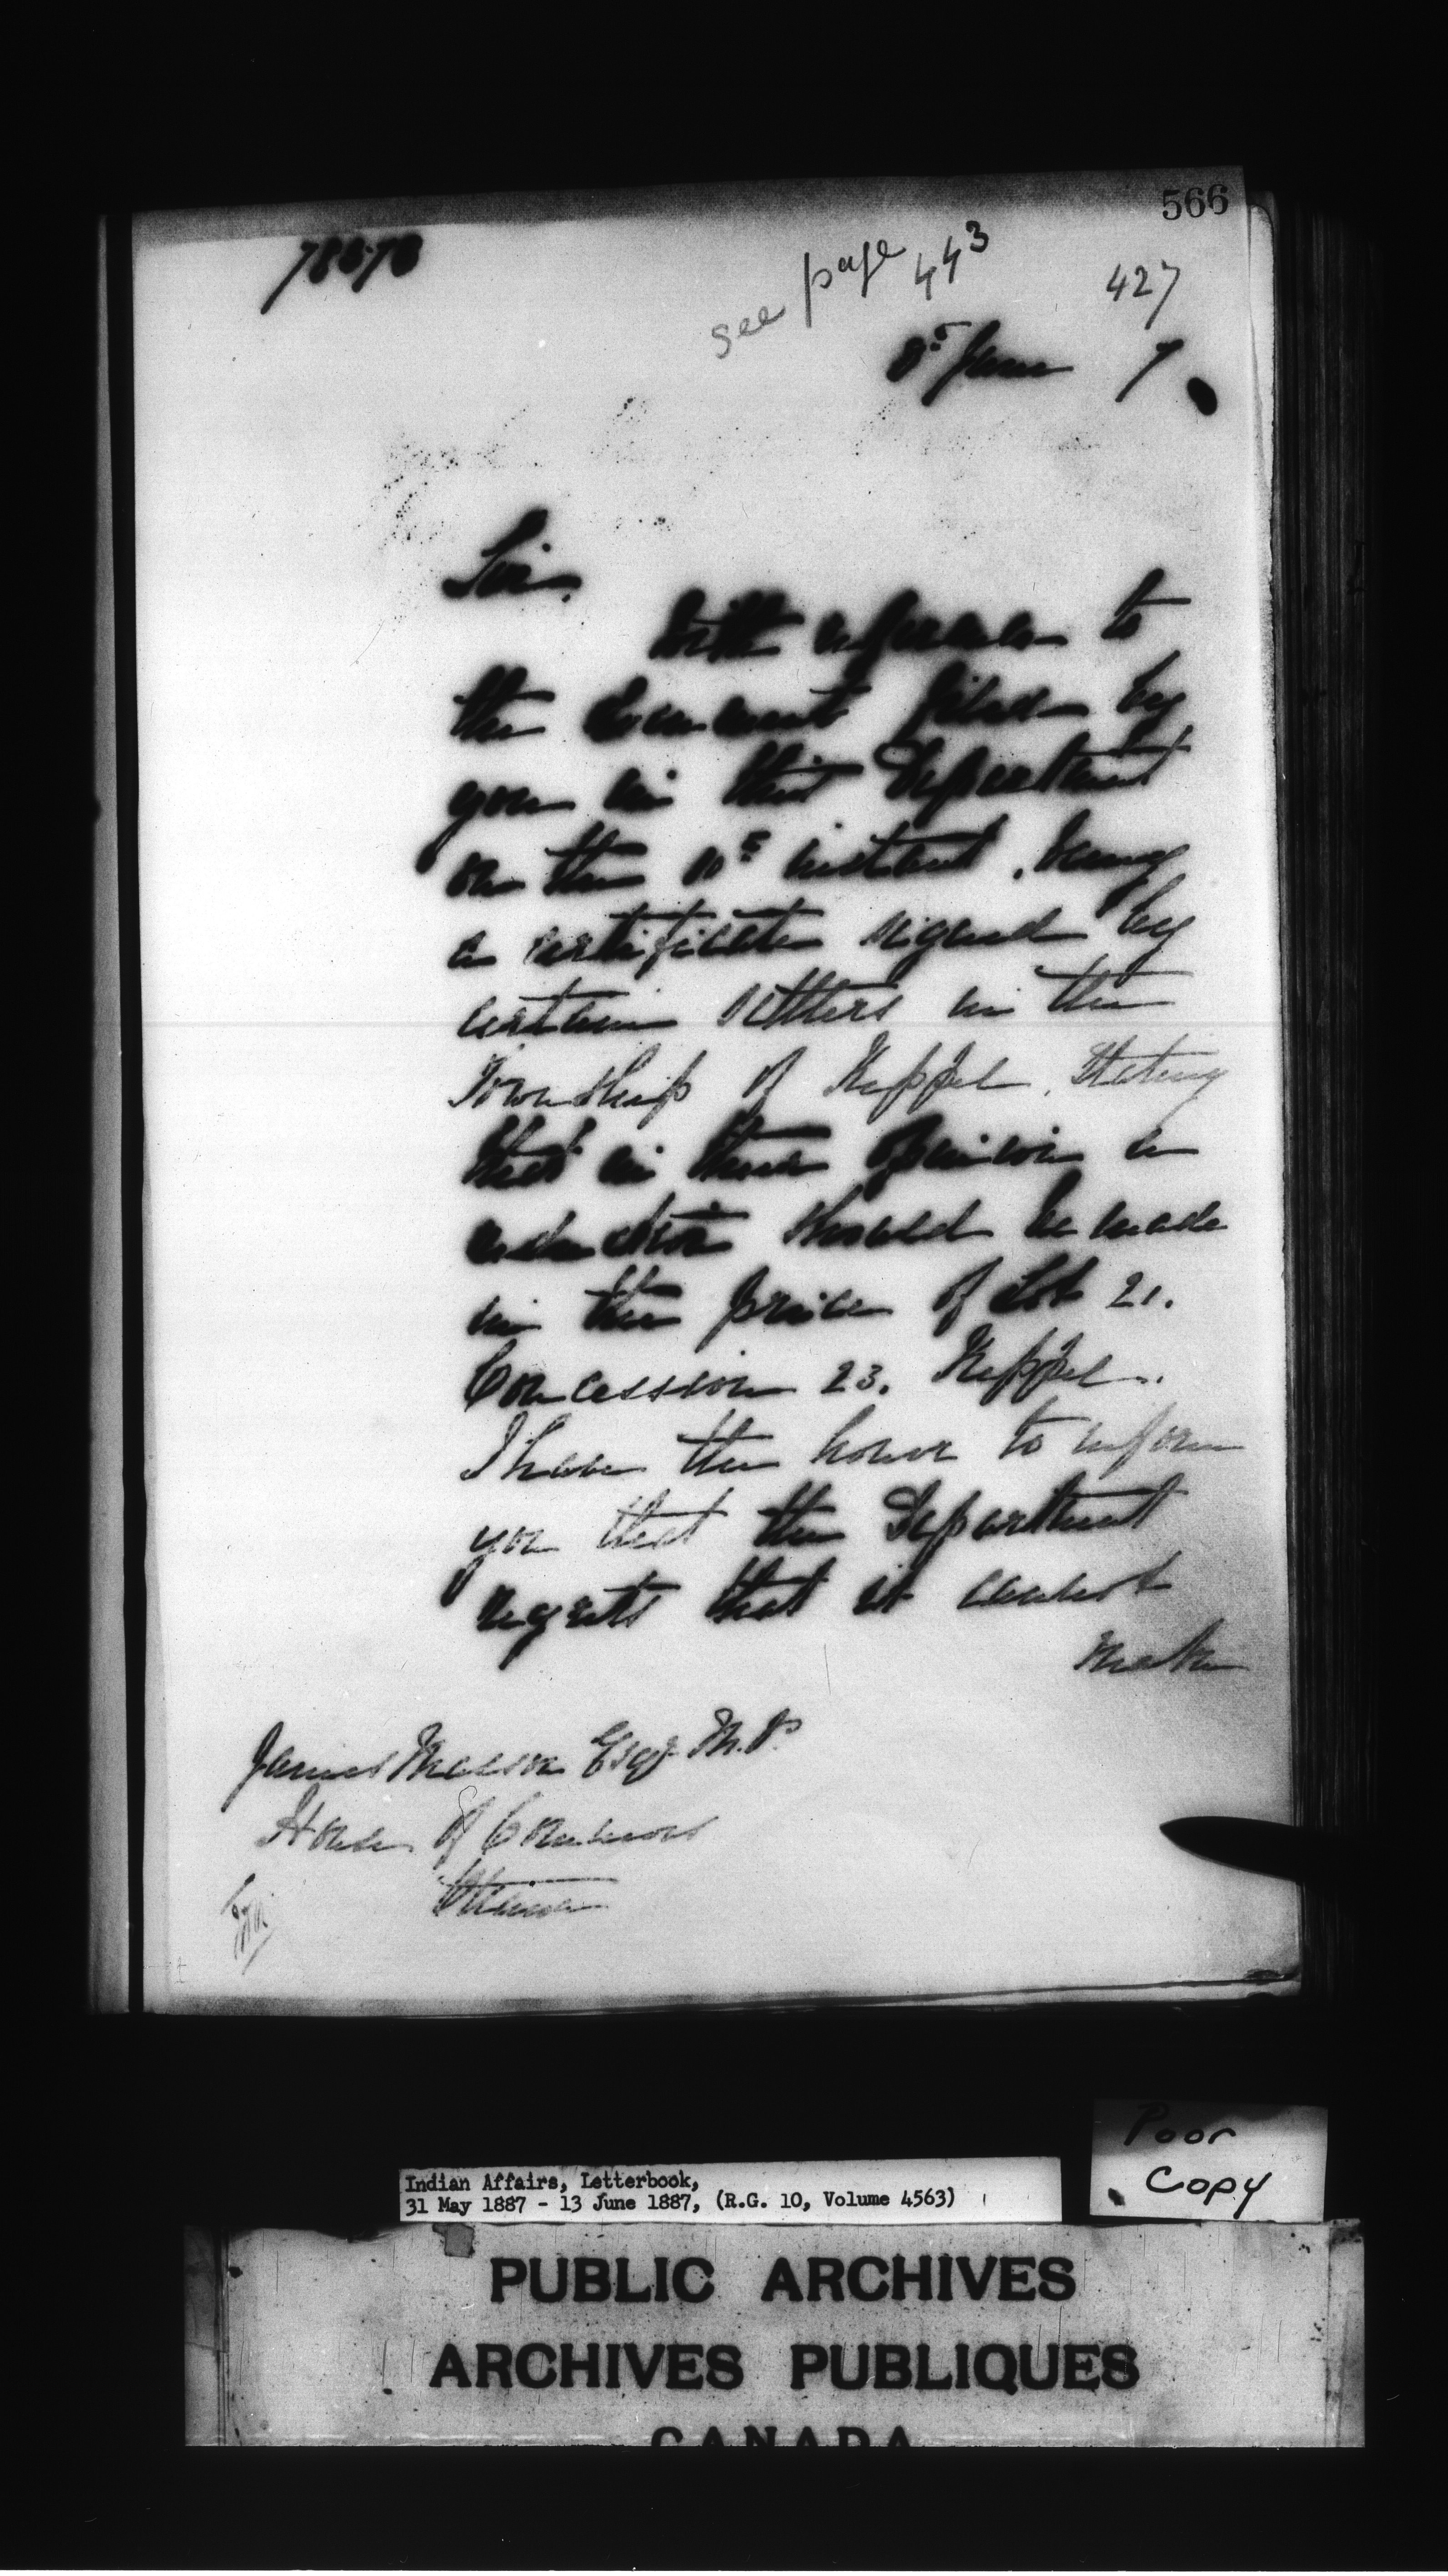 566
see page 443
427
8th June 7
Sir,
With reference to
the document filed by
you in this Department
on the instant, being
a certificate signed by
certain settlers in the
Township of Keppel, stating
that in their opinion a
reduction should be made
in the price of Lot 21.
Concession 23. Keppel.
I have the honor to inform
you that the Department
regrets that it cannot
make
James Masson Esqr. M.P.
House of Commons
Ottawa
Poor
Copy
Indian Affairs, Letterbook,
31 May 1887 - 13 June 1887, (R.G. 10, Volume 4563)
PUBLIC ARCHIVES
ARCHIVES PUBLIQUES
CANADA